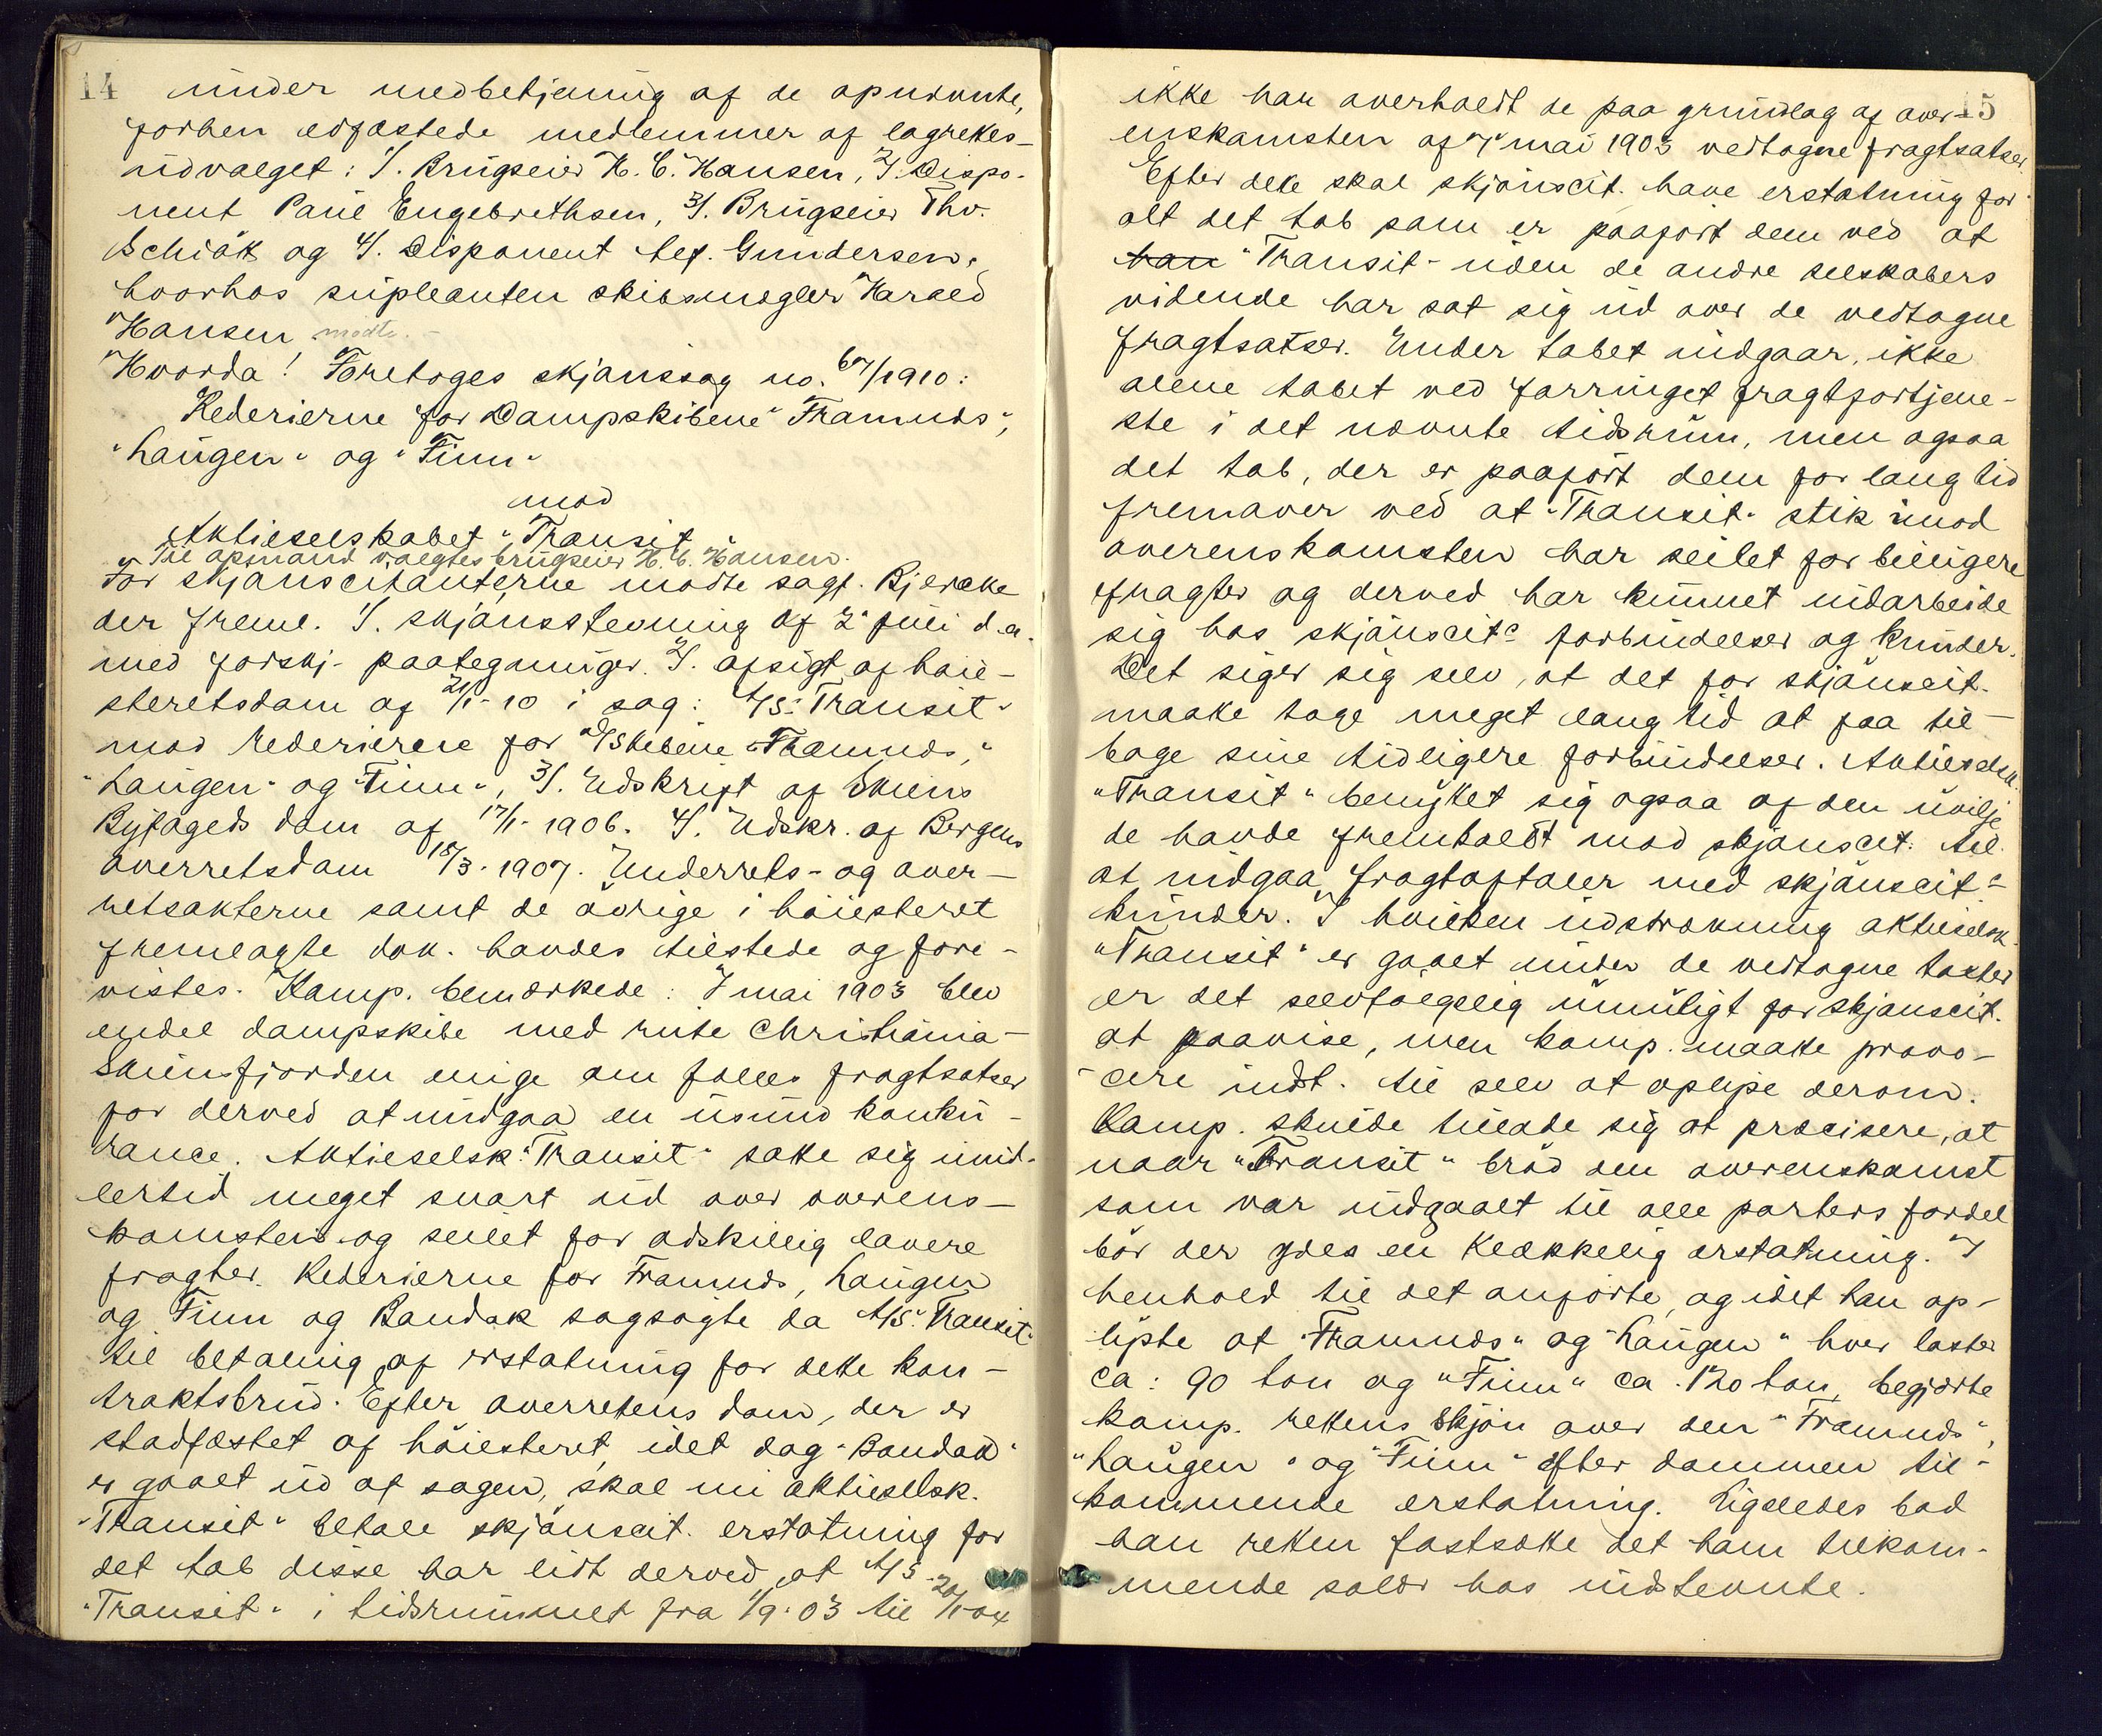 14
under medbetjening af de opnævnte,
forhen edfæstede medlemmer af lagrettes-
udvalget: 1/. Brugseier H. C. Hansen, 2/. Dispo-
nent Paul Engebrethsen, 3/. Brugseier Thv.
Schiøtt og 4/. Disponent Alf. Gundersen,
hvorhos supleanten skibsmægler Harald
Hansen mødte.-
Hvorda! Foretoges skjønssag no. 67/1910:
Rederierne for Dampskibene "Framnæs",
"Laugen" og "Finn"
mod
Aktieselskabet "Transit".
Til opmand valgtes brugseier H. C. Hansen.
For skjønscitanterne mødte sagf. Bjercke
der freml. 1/. skjønsstevning af 2' juli d. a.
med forskj. paategninger. 2/. afsigt af høie-
steretsdom af 21/1-10 i sag: A/S "Transit"
mod rederierne for D/Skibene "Framnæs",
"Laugen" og "Finn", 3/. Udskrift af Skiens
Byfogeds dom af 17/1-1906. 4/. Udskr. af Bergens
overretsdom 18/3-1907. Underrets- og over-
retsakterne samt de øvrige i høiesteret
fremlagte dok. havdes tilstede og fore-
vistes. Komp. bemærkede: 7 mai 1903 blev
endel dampskibe med rute Christiania-
Skiensfjorden enige om fælles fragtsatser
for derved at undgaa en usund konku-
rance. Aktieselsk. "Transit" satte sig imid-
lertid meget snart ud over overens-
komsten og seilet for adskillig lavere
fragter. Rederierne for Framnæs, Laugen
og Finn og Bandak sagsøgte da A/S "Transit"
til betaling af erstatning for dette kon-
traktsbrud. Efter overrettens dom, der er
stadfæstet af høiesteret, idet dog "Bandak"
er gaaet ud af sagen, skal nu aktieselsk.
"Transit" betale skjønscit. erstatning for
det tab disse har lidt derved, at A/S
"Transit" i tidsrummet fra 1/9-03 til 20/1-04
15
ikke har overholdt de paa grundlag af over-
enskomsten af 7' mai 1903 vedtagne fragtsatser.
Efter dette skal skjønscit. have erstatning for
alt det tab som er paaført dem ved at
han "Transit" uden de andre selskabers
vidende har sat sig ud over de vedtagne
fragtsatser. Under tabet indgaar, ikke
alene tabet ved forringet fragtfortjene-
ste i det nævnte tidsrum, men ogsaa
det tab, der er paaført dem for lang tid
fremover ved at "Transit" stik imod
overenskomsten har seilet for billigere
fragter og derved har kunnet indarbeide
sig hos skjønscits forbindelser og kunder.
Det siger sig selv, at det for skjønscit.
maatte tage meget lang tid at faa til-
bage sine tidligere forbindelser. Aktieselsk.
"Transit" benyttet sig ogsaa af den uvilje
de havde fremkaldt mod skjønscit. til
at indgaa fragtaftaler med skjønscits
kunder. I hvilken udstrækning aktieselsk.
"Transit" er gaaet under de vedtagne takster
er det selvfølgelig umuligt for skjønscit.
at paavise, men komp. maatte provo-
cere indst. til selv at oplyse derom.
Komp. skulde tillade sig at præcisere, at
naar "Transit" brød den overenskomst
som var indgaaet til alle parters fordel
bør der ydes en klækkelig erstatning. I
henhold til det anførte, og idet han op-
lyste at "Framnæs" og "Laugen" hver laster
ca: 90 ton og "Finn" ca. 120 ton, begjærte
komp. rettens skjøn over den "Framnæs",
"Laugen" og "Finn" efter dommen til-
kommende erstatning. Ligeledes bad
han retten fastsætte det ham tilkom-
mende salær hos indstevnte.